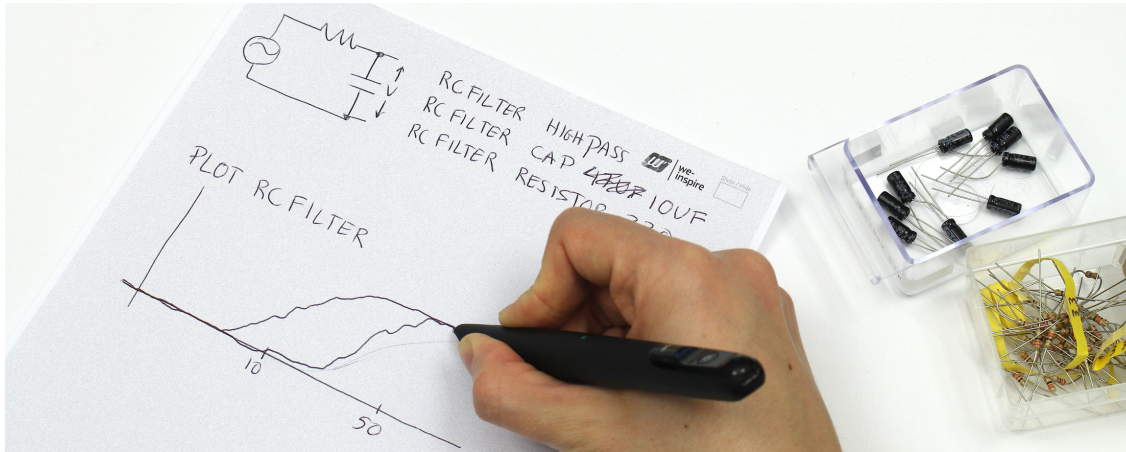 V
RC FILTER HIGHPASS
RC FILTER CAP 10UF
RC FILTER RESISTOR 220
we-
inspire
Show / Hide
PLOT RC FILTER
10
50